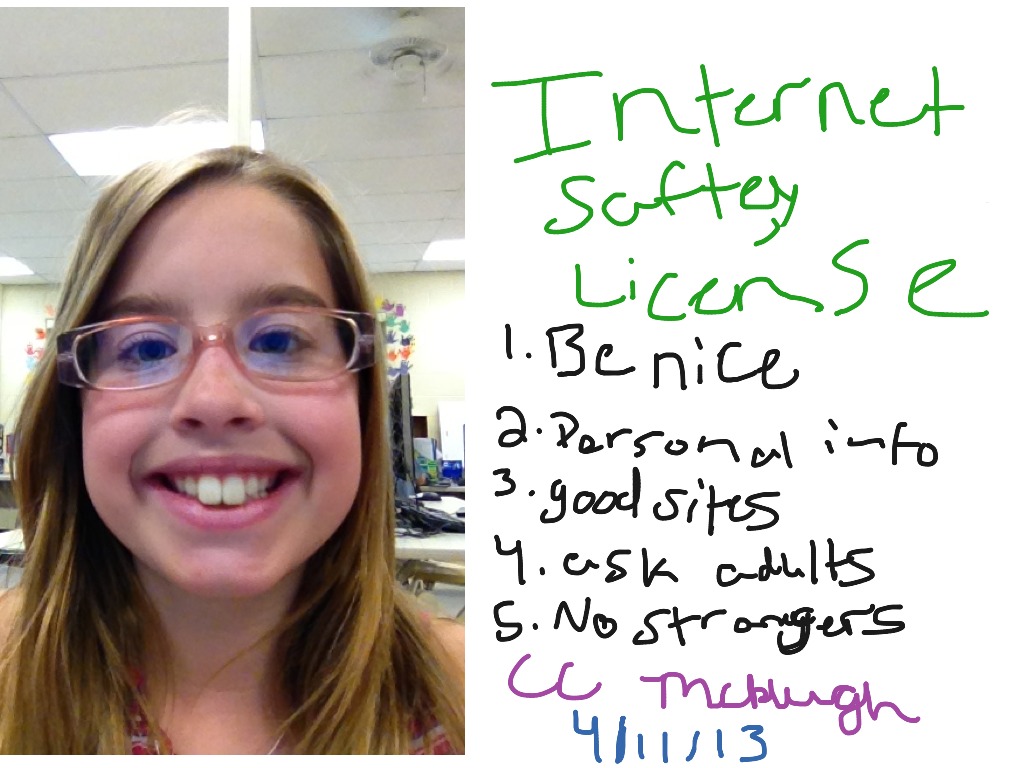 Internet
Saftey
License
1. Be nice
2. Personal info
3. good sites
4. ask adults
5. No strangers
CC McHugh
4/11/13